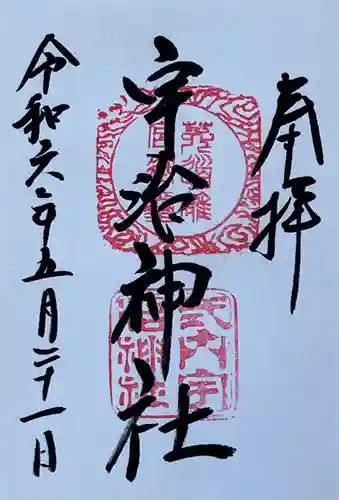 奉拝
宇治神社
令和六年五月二十一日